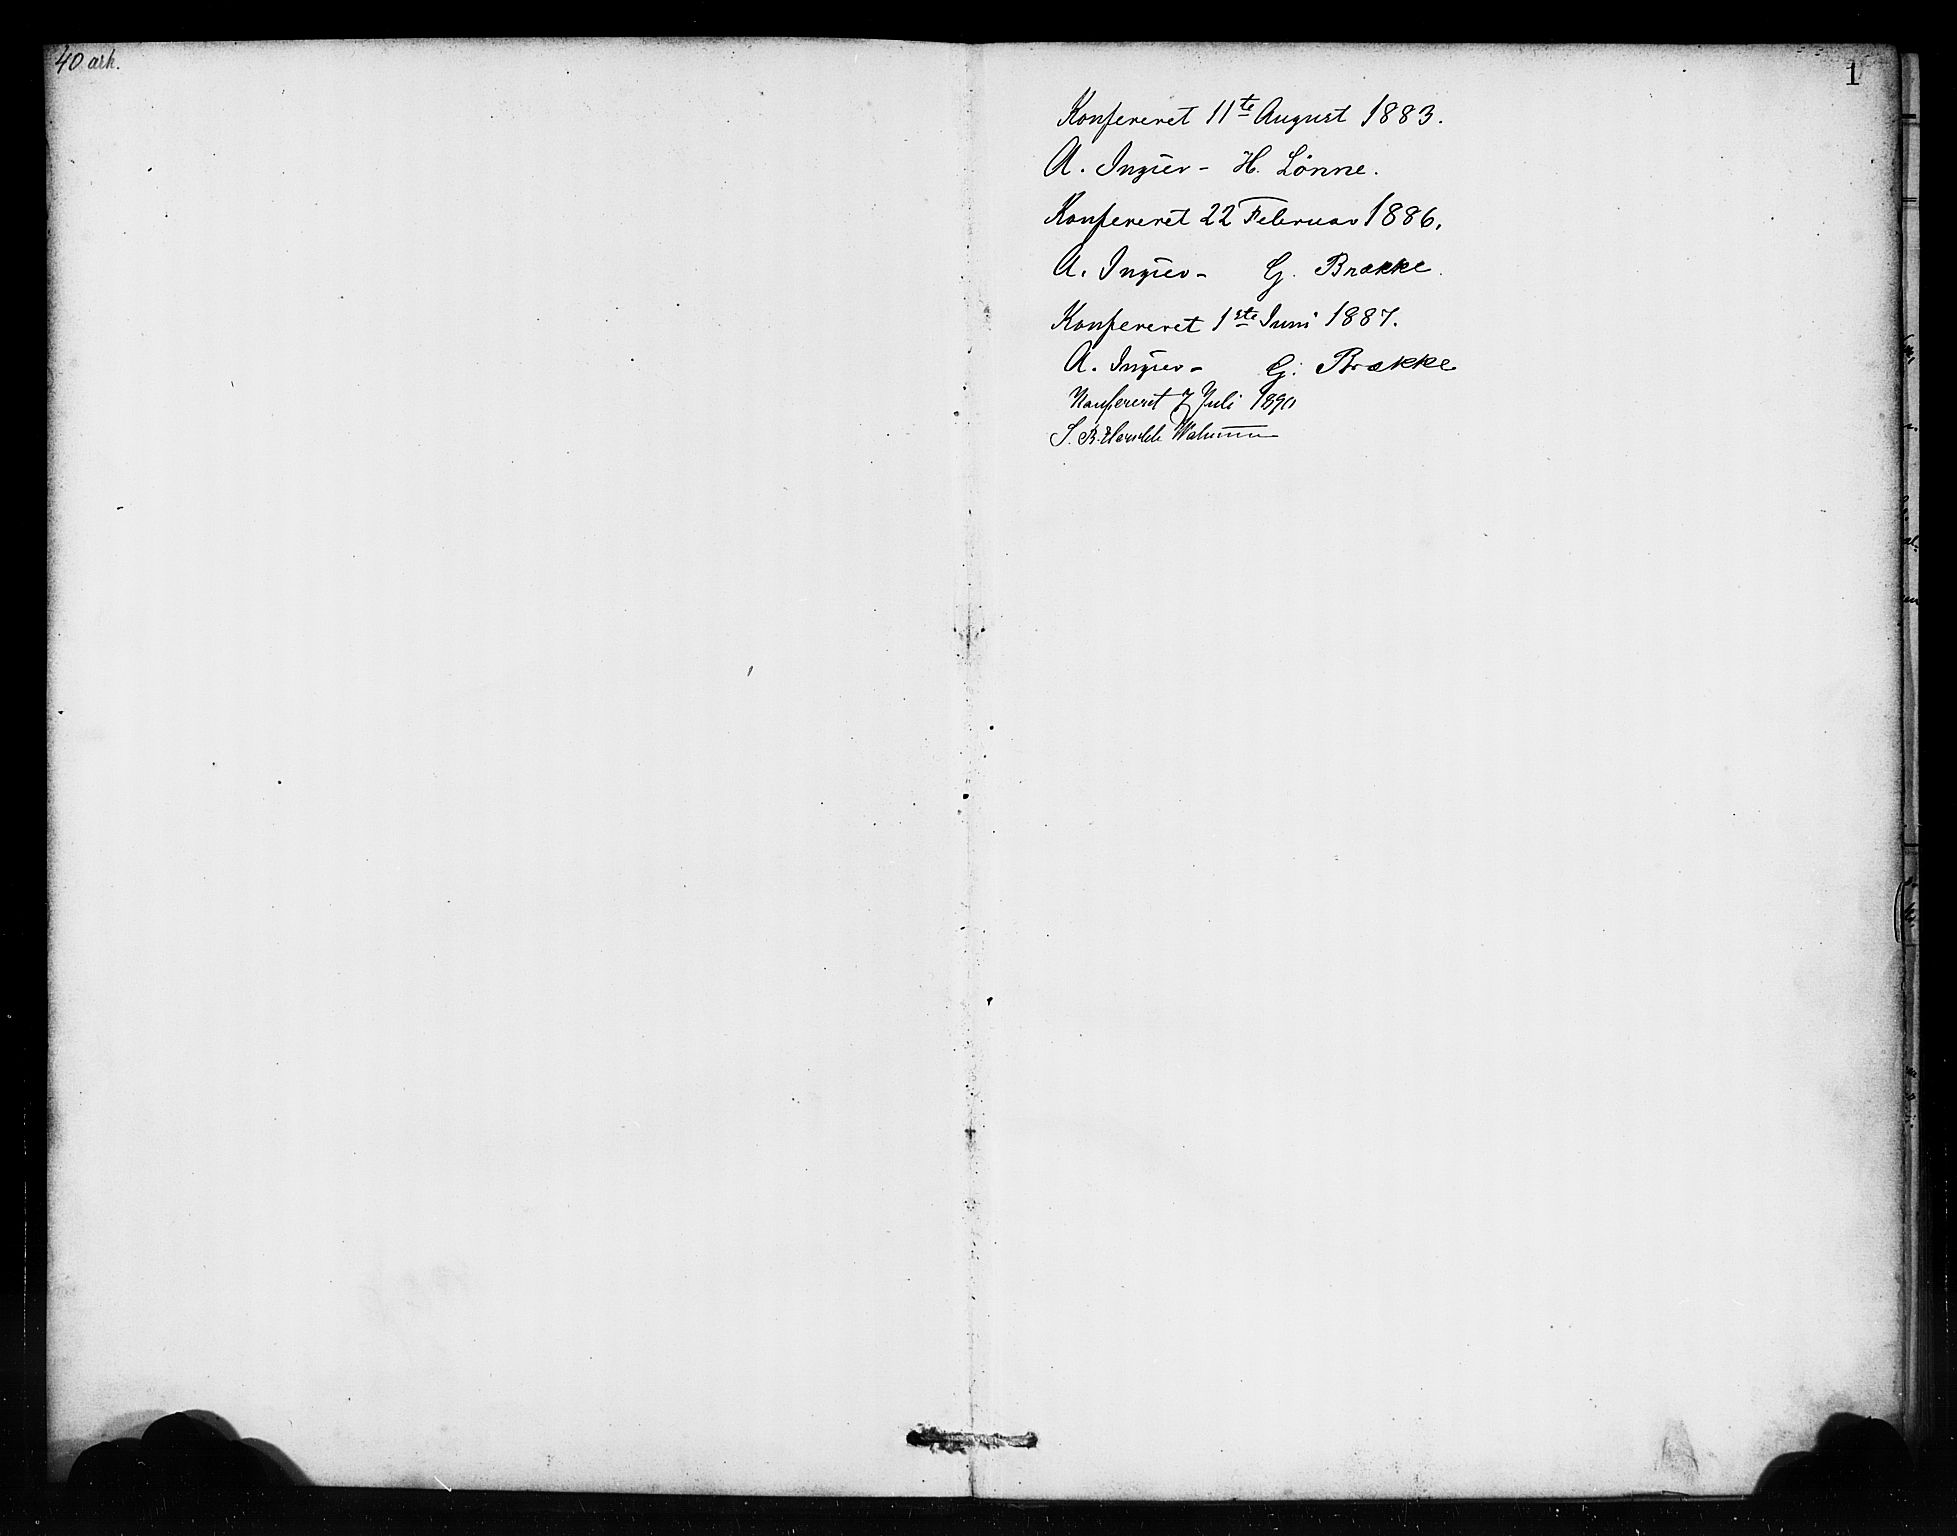 40 ark.
1
Konfereret 11te August 1883.
A. Ingier - H. Lönne.
Konfereret 22 Februar 1886.
A. Ingier - G. Brække.
Konfereret 1ste Juni 1887.
A. Ingier - G. Brække
Konfereret 7 Juli 1890
S. B.